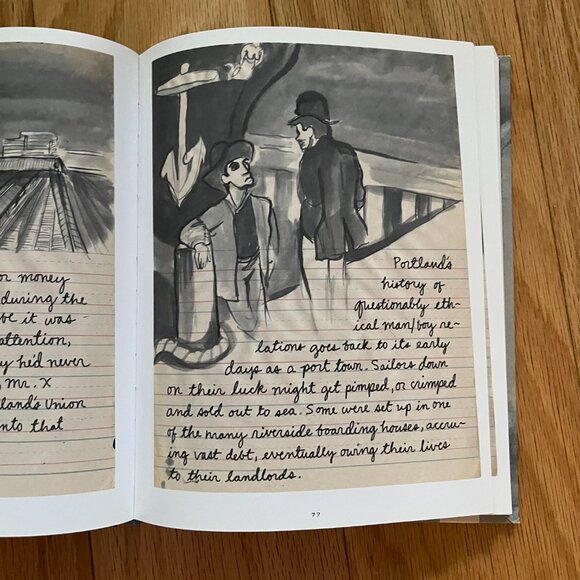 or money
during the
be it was
attention,
y he'd never
, mr. x
land's Union
nto that
Portland's
history of
questionably eth-
ical man/boy re-
lations goes back to its early
days as a port town. Sailors down
on their luck might get pimped, or crimped
and sold out to sea. Some were set up in one
of the many riverside boarding houses, accru-
ing vast debt, eventually owing their lives
to their landlords.
77